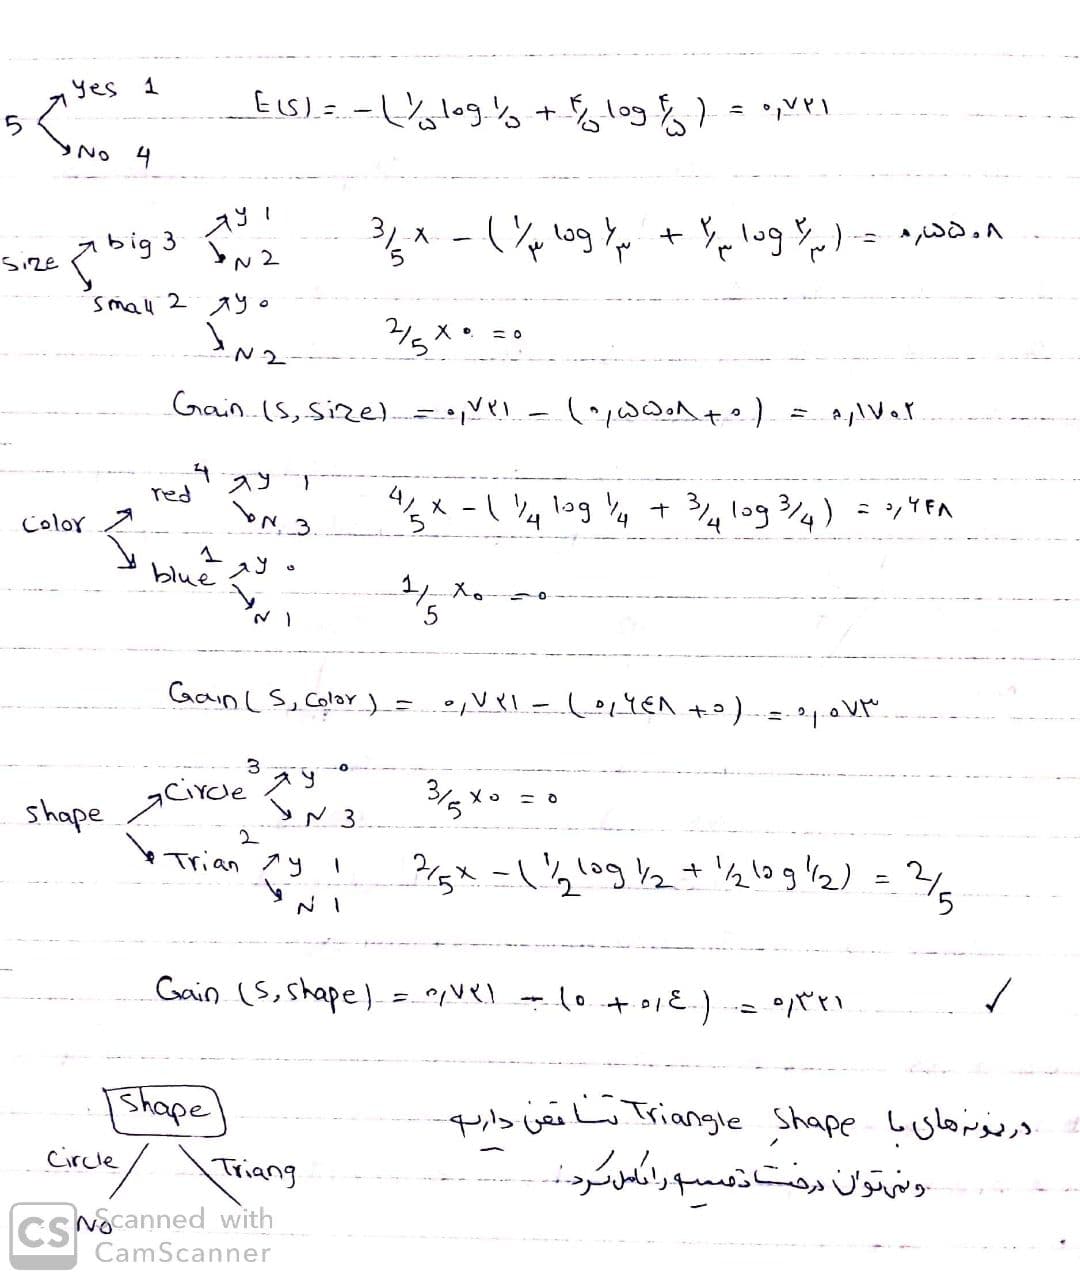 5 Yes 1
No 4
E(S) = - (۱/۵ log ۱/۵ + ۴/۵ log ۴/۵) = ۰,۷۲۱
size big 3 y ۱
N 2
3/5 x - (۱/۳ log ۱/۳ + ۲/۳ log ۲/۳) = ۰,۵۵۰۸
small 2 y ۰
N 2
2/5 x ۰ = ۰
Gain (S, size) = ۰,۷۲۱ - (۰,۵۵۰۸ + ۰) = ۰,۱۷۰۲
color red 4 y ۱
N 3
4/5 x - (1/4 log 1/4 + 3/4 log 3/4) = ۰,۶۴۸
blue 1 y ۰
N ۱
1/5 x ۰ = ۰
Gain (S, Color) = ۰,۷۲۱ - (۰,۶۴۸ + ۰) = ۰,۰۷۳
shape Circle 3 y ۰
N 3
3/5 x ۰ = ۰
Trian 2 y ۱
N ۱
2/5 x - (1/2 log 1/2 + 1/2 log 1/2) = 2/5
Gain (S, shape) = ۰,۷۲۱ - (۰ + ۰,۴) = ۰,۳۲۱ ✓
Shape
Circle Triang
No
در نمونه‌های با shape Triangle تناقض داریم
و نمی‌توان درخت تصمیم را کامل کرد.
CS Scanned with
CamScanner